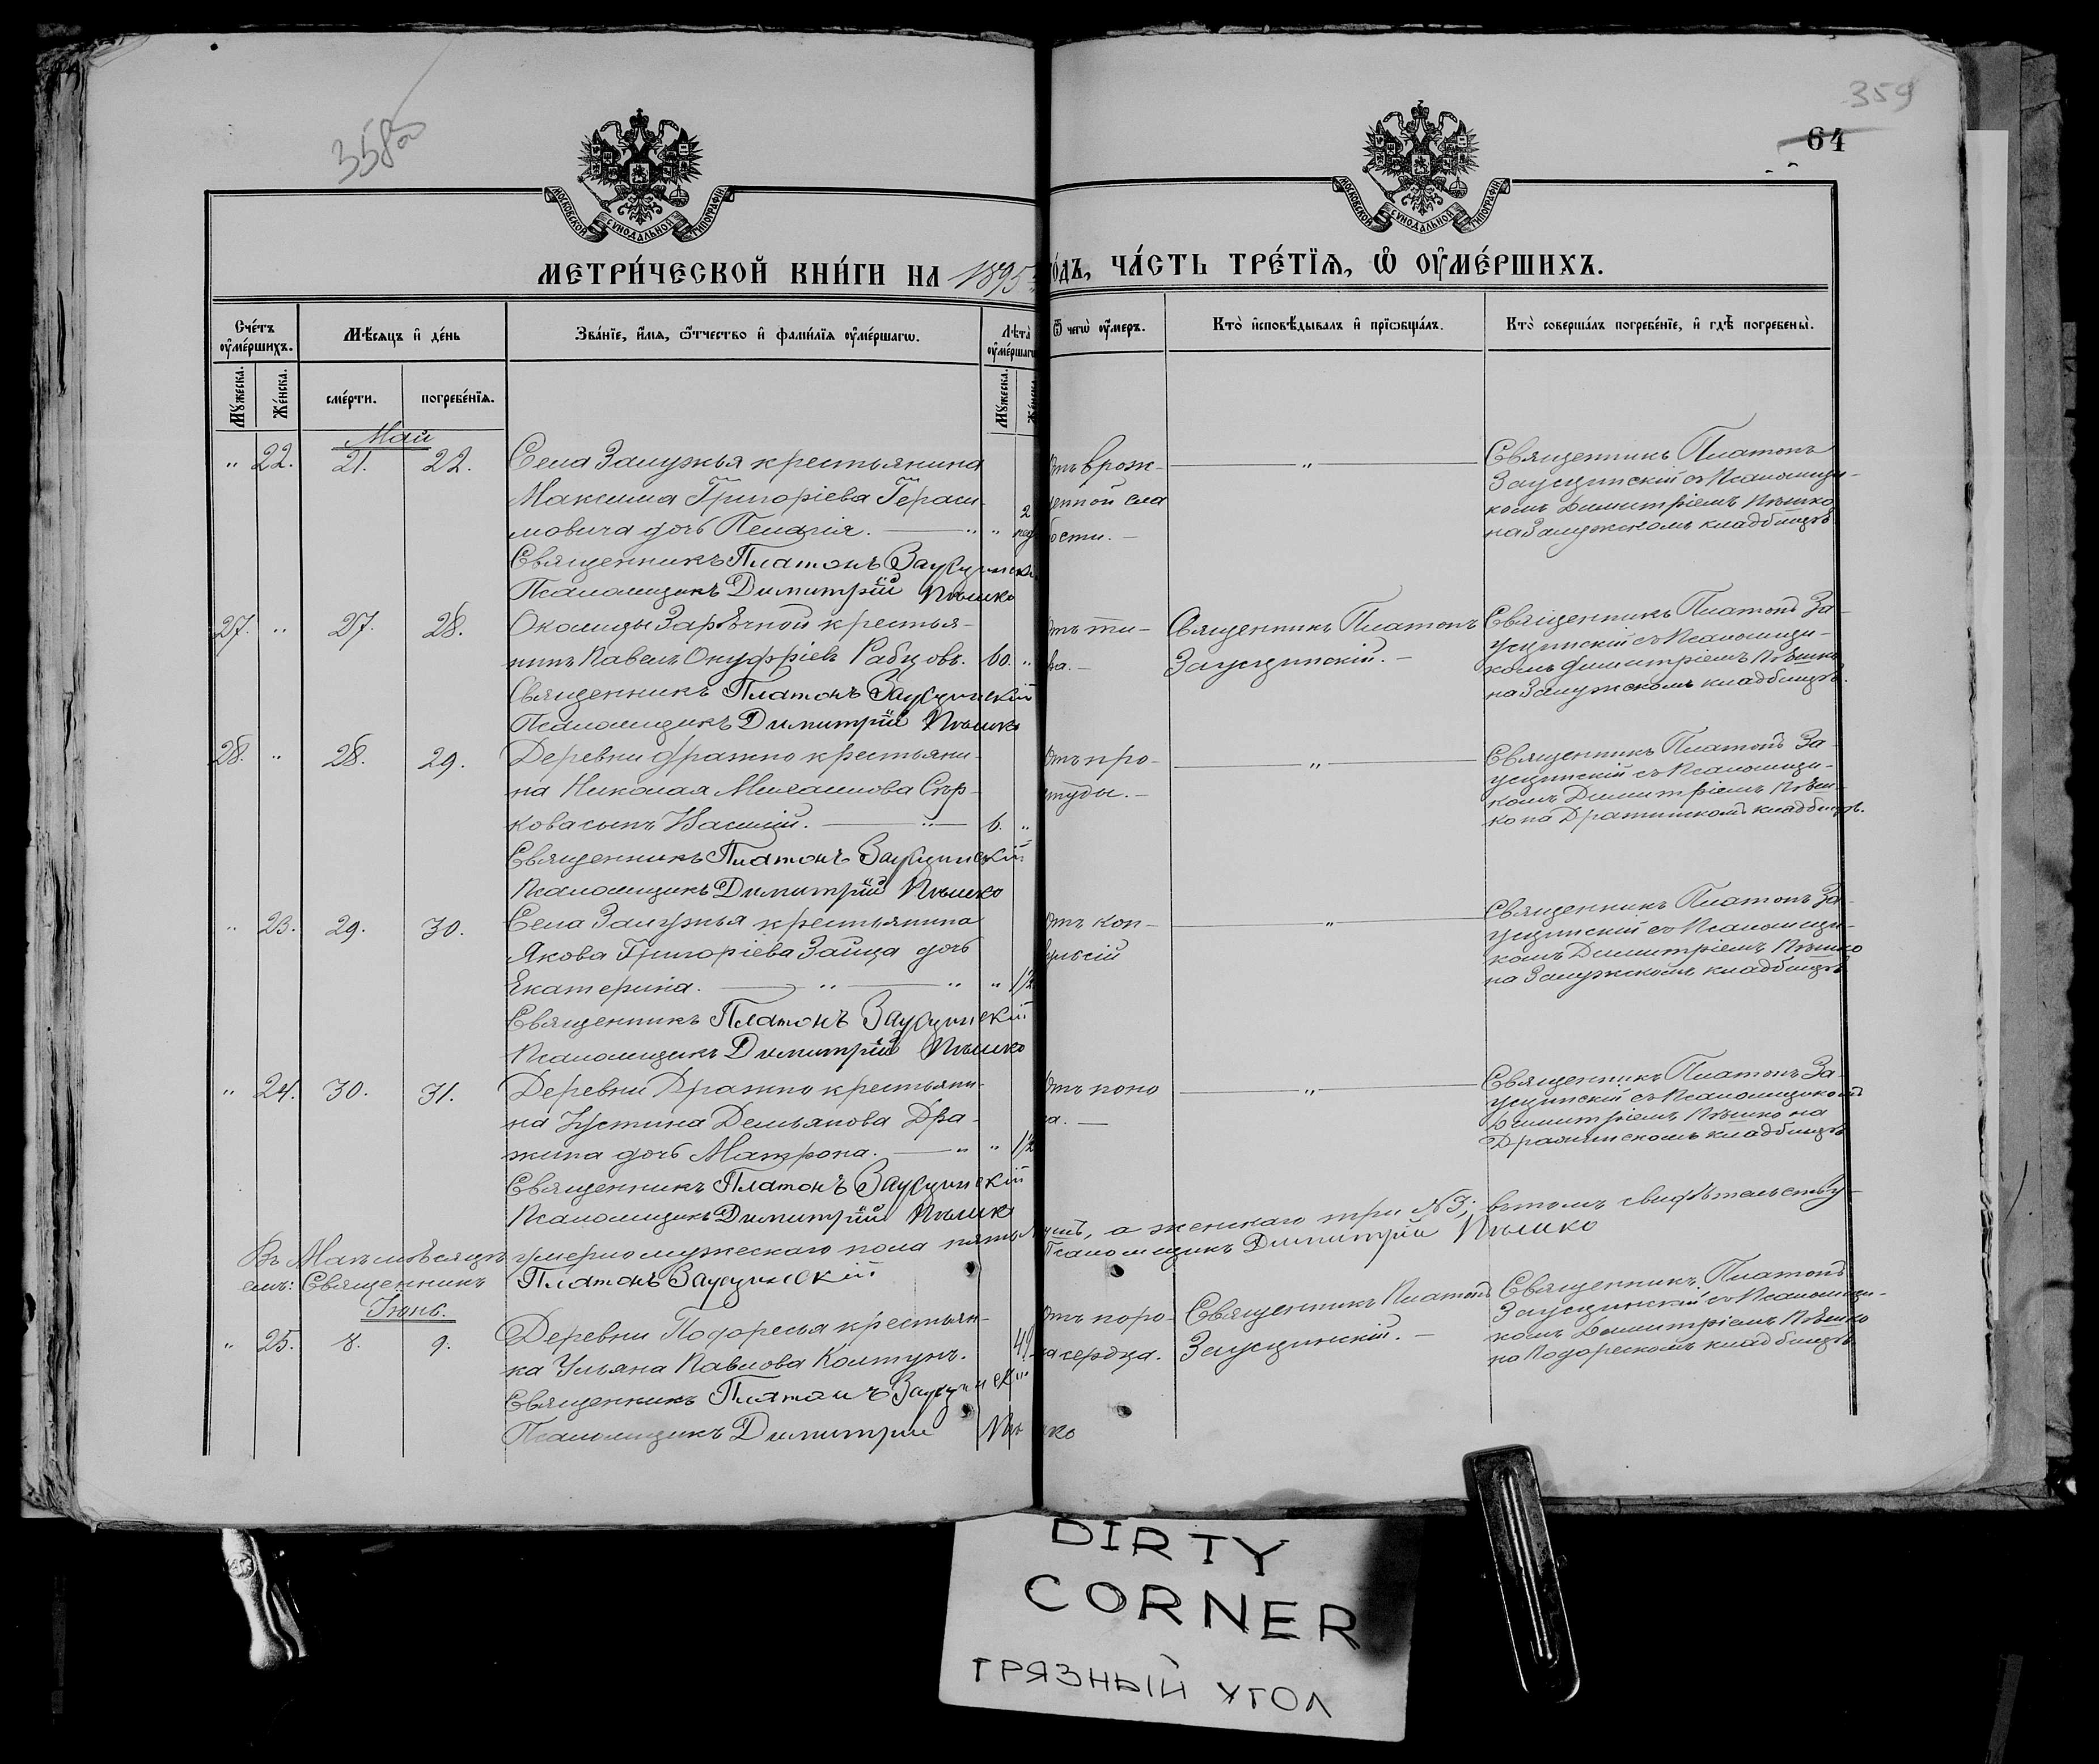 358 об
359
64
МОСКОВСКОЙ СУНОДАЛЬНОЙ ТИПОГРАФІИ
МОСКОВСКОЙ СУНОДАЛЬНОЙ ТИПОГРАФІИ
МЕТРИ́ЧЕСКОЙ КНИ́ГИ НА 1895й
о́дъ, ЧА́СТЬ ТРЕ́ТІѦ, Ѡ҆ ОУ҆МЕ́РШИХЪ.
Сче́тъ оу҆ме́ршихъ.
Мѣ́сѧцъ и҆ де́нь
Зва́нїе, и҆́мѧ, ѻ҆́тчество и҆ фами́лїѧ оу҆ме́ршагѡ.
Лѣ́та оу҆ме́ршагѡ
Ѿ чегѡ̀ оу҆́меръ.
Кто̀ и҆сповѣ́дывалъ и҆ прїѡбща́лъ.
Кто̀ соверша́лъ погребе́нїе, и҆ гдѣ̀ погребены̀.
Мꙋ́жеска.
Же́нска.
сме́рти.
погребе́нїѧ.
Мꙋ́жеска.
Май
" 22. 21. 22. Села Залужья крестьянина
Максима Григоріева Гераси-
мовича дочь Пелагія. " " 2 нед
Священникъ Платонъ Заусцинскій
Псаломщикъ Димитрій Пѣшко
отъ врож-
денной сла
бости.
"
Священникъ Платонъ
Заусцинскій съ Псаломщи-
комъ Димитріемъ Пѣшко
на Залужскомъ кладбищѣ
27. " 27. 28. Околицы Зарѣчной крестья-
нинъ Павелъ Онуфріевъ Рабцовъ. 60. "
Священникъ Платонъ Заусцинскій
Псаломщикъ Димитрій Пѣшко
отъ ти-
ка.
Священникъ Платонъ
Заусцинскій.
Священникъ Платонъ За-
усцинскій съ Псаломщи-
комъ Димитріемъ Пѣшко
на Залужскомъ кладбищѣ.
28. " 28. 29. Деревни Дражно крестьяни-
на Николая Миха
ковa сынъ Василій. " 6. "
Священникъ Платонъ Заусцинскій
Псаломщикъ Димитрій Пѣшко
отъ про-
студы.
"
Священникъ Платонъ За-
усцинскій съ Псаломщи-
комъ Димитріемъ Пѣш-
ко на кладбищѣ.
" 23. 29. 30. Села Залужья крестьянина
Якова Григоріева Зайца дочь
Екатерина. " " " 1/2
Священникъ Платонъ Заусцинскій
Псаломщикъ Димитрій Пѣшко
отъ кон-
вульсій
"
Священникъ Платонъ За-
усцинскій съ Псаломщи-
комъ Димитріемъ Пѣшко
на Залужскомъ кладбищѣ
" 24. 30. 31. Деревни Дражно крестьяни-
на Іустина Демьянова Дра-
жина дочь Матрона. " " 1/2
Священникъ Платонъ Заусцинскій
Псаломщикъ Димитрій Пѣшко
отъ поно
са.
"
Священникъ Платонъ За-
усцинскій съ Псаломщикомъ
Димитріемъ Пѣшко на
кладбищѣ
Въ Маѣ мѣсяцѣ умерло мужескаго пола пять, а женскаго три №3; въ томъ свидѣтельству-
емъ: Священникъ Платонъ Заусцинскій Псаломщикъ Димитрій Пѣшко
Іюнь.
" 25. 8. 9. Деревни Подоресья крестьян-
ка Ульяна Павлова Колтунъ.
Священникъ Платонъ Заусцинскій
Псаломщикъ Димитрій Пѣшко
отъ поро-
ка сердца.
Священникъ Платонъ
Заусцинскій.
Священникъ Платонъ
Заусцинскій съ Псаломщи-
комъ Димитріемъ Пѣшко
на Подорескомъ кладбищѣ
DIRTY
CORNER
ГРЯЗНЫЙ УГОЛ